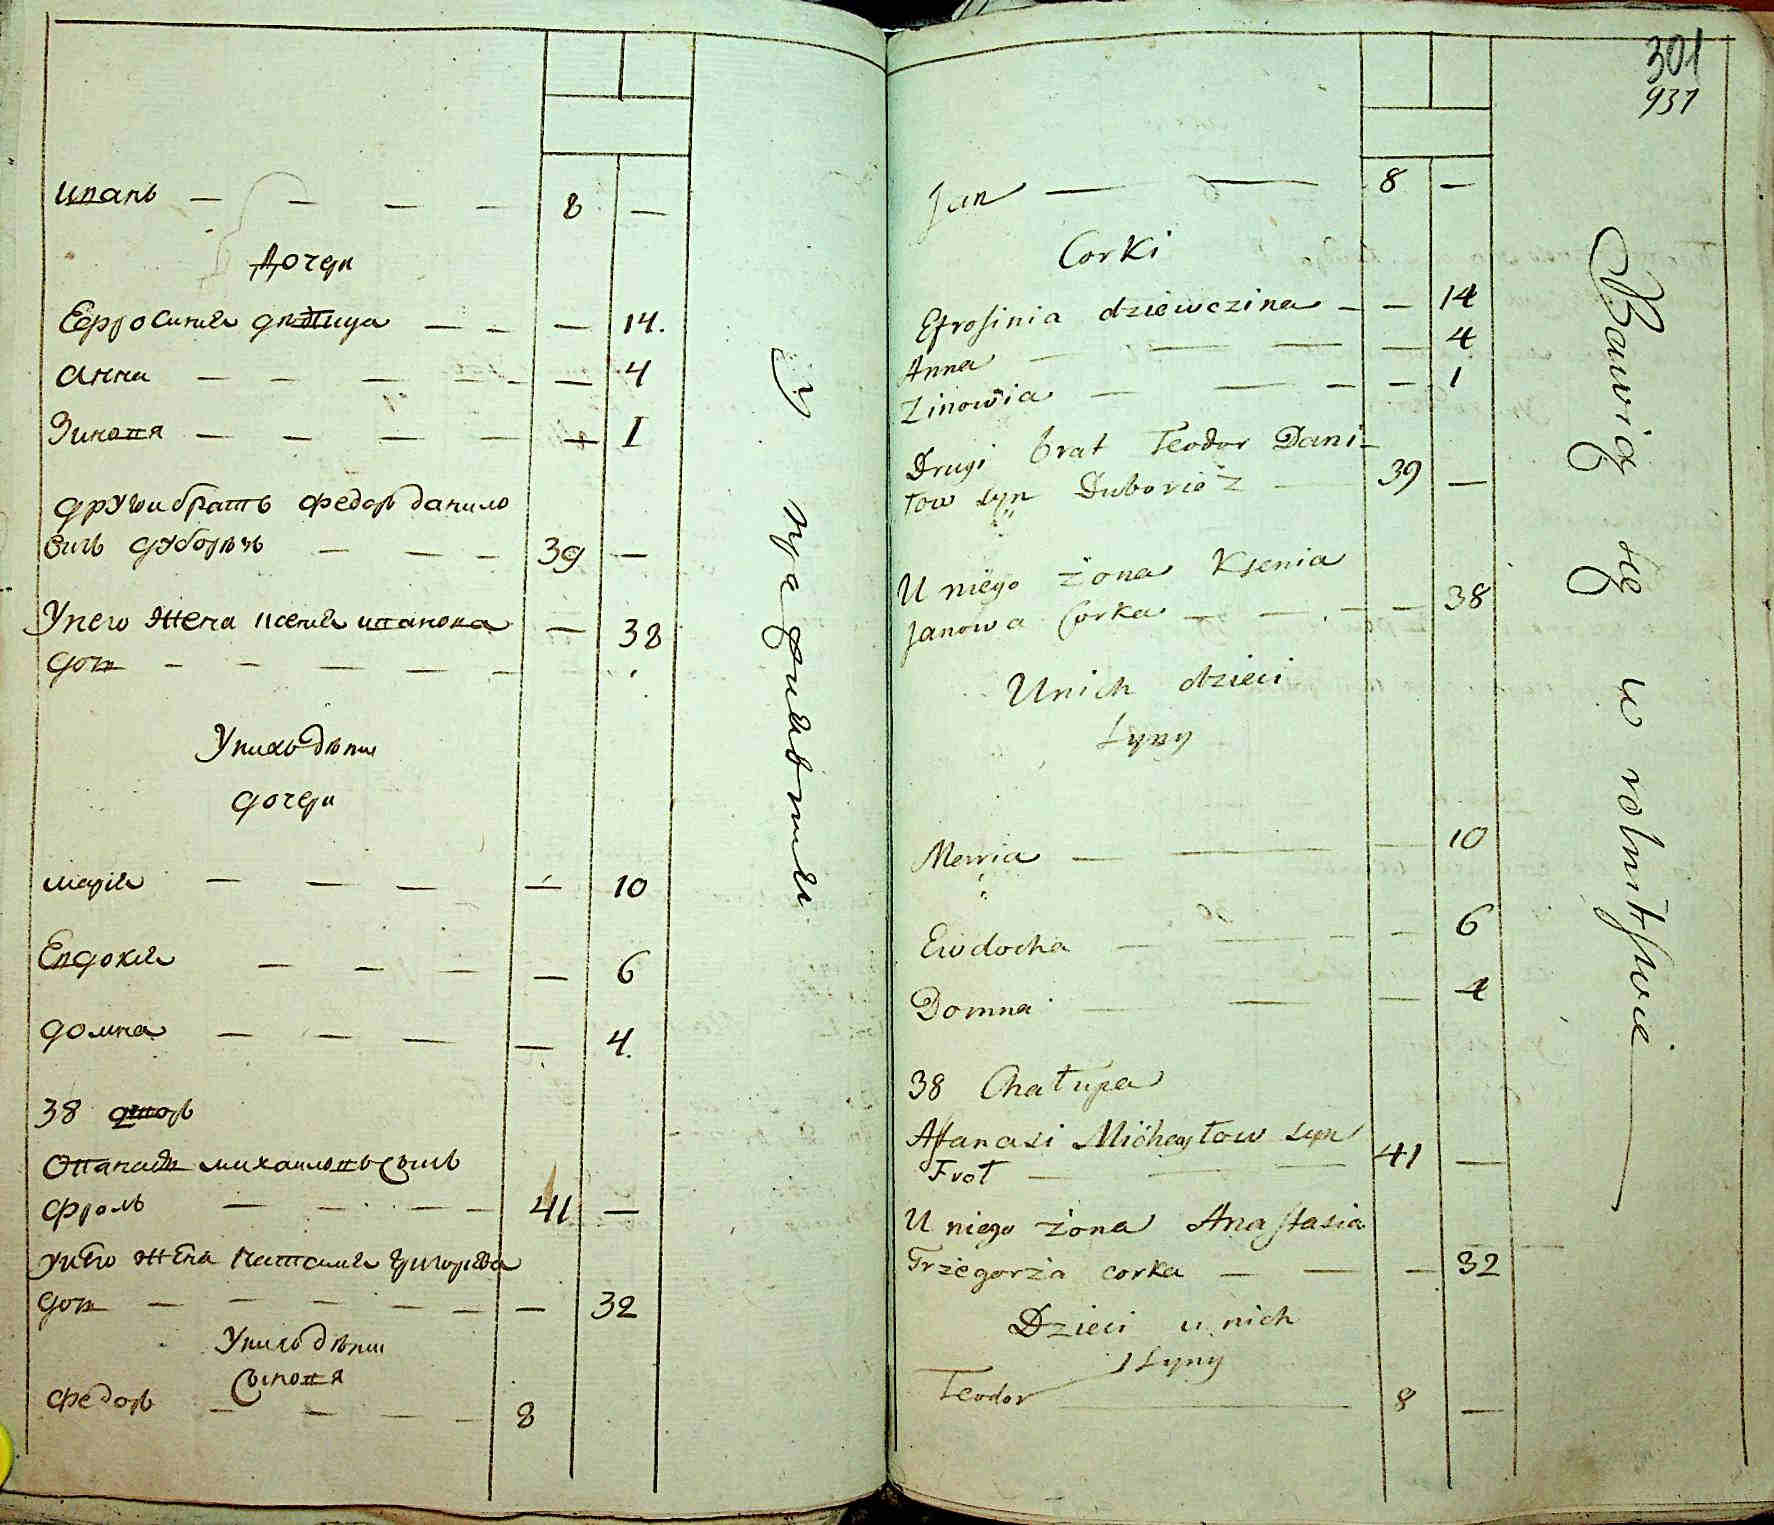 иванъ — — — — 8 —
Дочери
Ефросиния девица — — — 14.
анна — — — — — — 4
Зиновя — — — — — 1
други братъ Федоръ данило
вичъ дуборезъ — — — 39 —
У него жена ксения иванова — 38
доч — — — — —
У нихъ дѣти
дочери
мария — — — — 10
Евдокия — — — — 6
домна — — — — 4.
38 дворъ
Офанаси михаиловъ сынъ
фролъ — — — — 41 —
у него жена настасия григорева
доч — — — — — — 32
У нихъ дѣти
сыновя
Федоръ — — — — 8
301
937
Jan — — 8 —
Corki
Efrosinia dziewczina — — 14
Anna — — — — 4
Zinowia — — — — 1
Drugi brat Teodor Dani-
łow syn Duboriez — 39 —
U niego żona Ksenia
Janowa Corka — — — — 38
U nich dzieci
Syny
Marria — — — 10
Ewdocha — — — — 6
Domna — — — 4
38 Chałupa
Affanasi Michayłow syn
Froł — — — 41 —
U niego żona Anastasia
Grzegorża corka — — — 32
Dzieci u nich
Syny
Teodor — 8 —
Bawią się w rolnitstwie